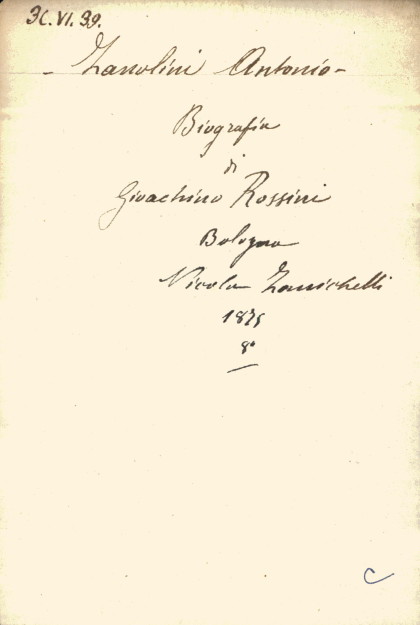 3C.VI.39.
- Zanolini Antonio -
Biografia
di
Gioachino Rossini
Bologna
Nicola Zanichelli
1875
8°
C